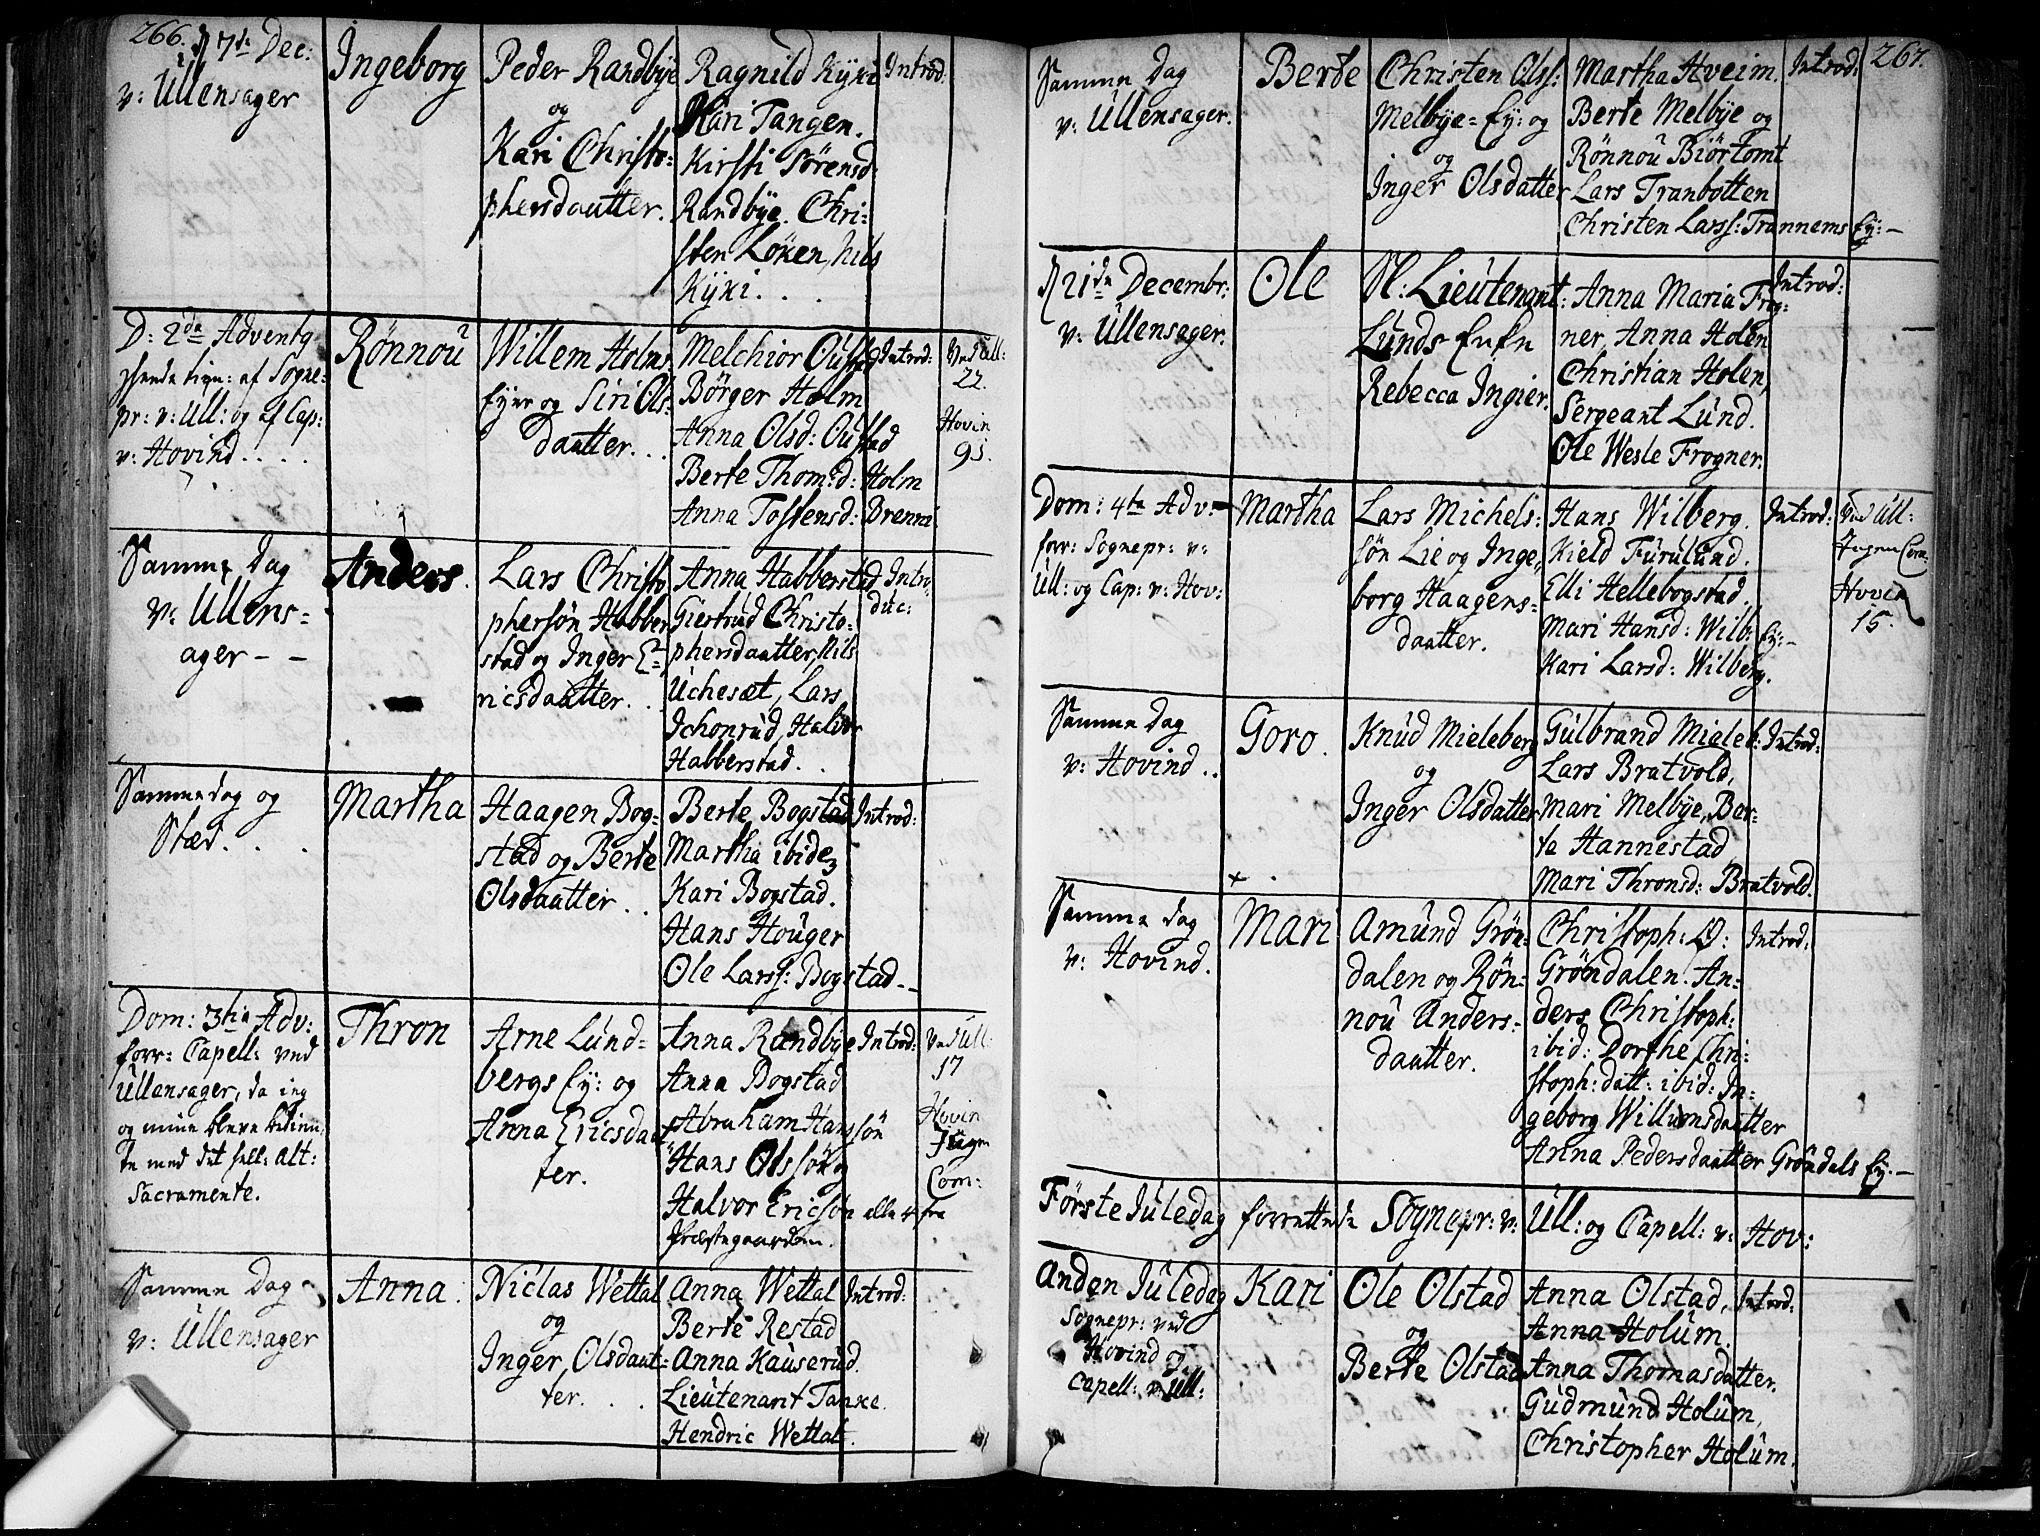 266.
d 7de Dec:
v: Ullensager
Ingeborg
Peder Randbye
og
Kari Christo=
phersdautter.
Ragnild Kyxi
Kari Tangen.
Kirsti Sörensd:
Randbye. Chri=
sten Löken, Nils
Kyxi. . .
Introd:
D: 2da Adventq
af Sogne=
pr: v: Ull: og af Cap:
v: Hovind. . . .
Rönnou
Willem Holms
Eyer og Siri Ols=
daatter. . .
Melchior Oustad
Börger Holm
Anna Olsd: Oustad
Berte Thom:d: Holm
Anna Tostensd: Brenni
Introd:
Ved Ull:
22.
Hovin
95.
Samme Dag
v: Ullens=
ager - -
Anders.
Lars Christo
phersön Habber
stad og Inger E=
ricsdaatter. .
Anna Habberstad
Giertrud Christo=
phersdaatter, Nils
Uchesæt, Lars
Ichonrud, Halvor
Habberstad. .
Intro=
duc:
Samme dag og
Stæd. . .
Martha
Haagen Bog=
stad og Berte
Olsdaatter. .
Berte Bogstad
Martha ibidem
Kari Bogstad.
Hans Houger
Ole Larss: Bogstad--
Introd:
Dom: 3tia Adv:
forr: Capell: ved
Ullensager, da ieg
og mine bleve betien,
te med det hell: Alt:
Sacramente.
Thron
Arne Lund=
bergs Ey: og
Anna Ericsdaat
ter.
Anna Randbye
Anna Bogstad
Abraham Hanssön
Hans Olssön og
Halvor Ericsön alle 4 fra
Præstegaarden.
Introd:
Ved Ull:
57
Hovin
Ingen
Com:
Samme Dag
v: Ullensager
Anna.
Niclas Wettal
og
Inger Olsdaat=
ter. . .
Anna Wettal
Berte Restad
Anna Kauserud.
Lieutenant Tanke.
Hendric Wettal.
Introd:
267.
Samme Dag
v: Ullensager.
Berte
Christen Olss:
Melbye= Ey: og
og
Inger Olsdatter
Martha Hveim.
Berte Melbye og
Rönnou Biörtomt
Lars Tranbotten
Christen Larss: Trannems Ey:-
Introd:
d 21de Decembr:
v: Ullensager.
Ole
Sl: Lieutenant:
Lunds Enke
Rebecca Ingier.
Anna Maria Frog=
ner, Anna Holen
Christian Holen,
Sergeant Lund.
Ole Wesle Frogner.
Introd:
Dom: 4ta Adv:
forr: Sognepr: v:
Ull: og Cap: v: Hov:
Martha
Lars Michels:
sön Lie og Inge,
borg Haagens=
daatter.
Hans Wilberg.
Kield Furulund.
Elli Hellebogstad
Mari Hansd: Wilb: Ey:-
Kari Larsd: Wilberg.
Introd:
Ved Ull:
Ingen Com.
Hovin
15.
Samme Dag
v: Hovind . .
Goro.
Knud Mieleberg
og
Inger Olsdatter
Gulbrand Mieleb:
Lars Bratvold,
Mari Melbye, Ber=
te Hannestad
Mari Thronsd: Bratvold.
Introd:
Samme Dag
v: Hovind.
Mari
Amund Grön=
dalen og Rön=
nou Anders=
daatter.
Christoph: O:
Gröndalen. An=
ders Christoph:
ibid: Dorthe Chri=
stoph: datt: ibid: In=
geborg Willumsdaatter
Anna Pedersdaatter Gröndals Ey.-
Introd:
Förste Juledag forrettede Sognepr: v: Ull: og Capell: v: Hov:
Anden Juledag
Sognepr: ved
Hovind og
Capell: v. Ull:
Kari
Ole Olstad
og
Berte Olstad
Anna Olstad,
Anna Holum.
Anna Thomasdatter.
Gudmund Holum,
Christopher Holum.
Introd: